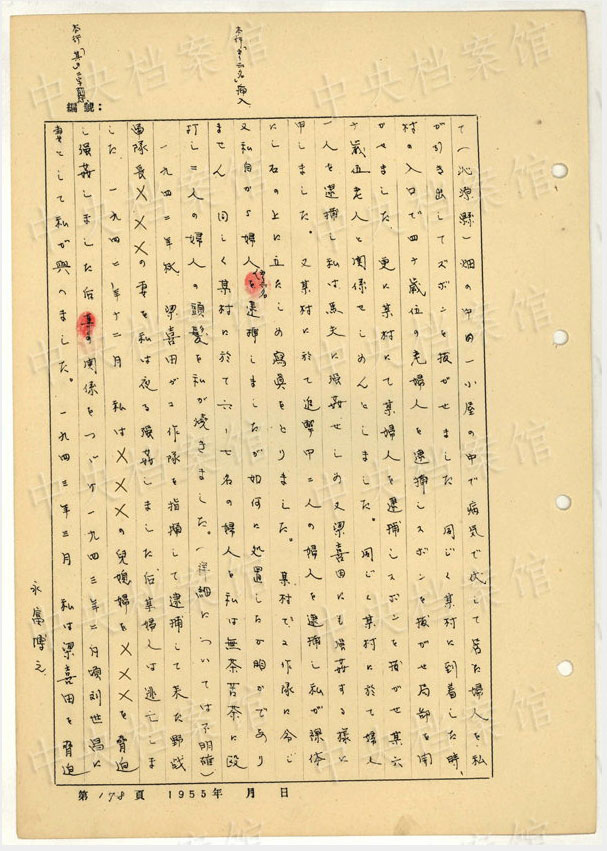 本行「十二名」挿入
本行「其の」二字訂正
編號：
て（沁源縣）畑の中の一小屋の中で病気で伏して居た婦人を私
が引き出してズボンを抜がせました 同じく某村に到着した時、
村の入口で四十歳位の老婦人を逮捕しズボンを抜がせ局部を開
かせました 更に某村にて某婦人を逮捕しスボンを抜がせ某六
十歳位老人と関係せしめんとしました。同じく某村に於て婦人
一人を逮捕し私は馬夫に強姦せしめ又梁喜田にも強姦する様に
申しました。又某村に於て追撃中二人の婦人を逮捕し私が裸体
にし石の上に立たしめ寫眞をとりました。 某村で工作隊に令じ
又私自から婦人十二名を逮捕しましたが如何に処置したか明かであり
ません 同じく某村に於て六、七名の婦人を私は無茶苦茶に殴
打し二人の婦人の頭髪を私が焼きました。（詳細については不明確）
一九四二年秋 梁喜田が工作隊を指揮して逮捕して来た野戦
軍隊長×××の妻を私は夜る強姦しました后某婦人は逃亡しま
した 一九四二年十二月 私は×××の兒媳婦を×××を脅迫
し強姦しました后其の関係をつゞけ一九四三年二月頃刘世昌に
妻として私が興へました。 一九四三年三月 私は梁喜田を脅迫
永富博之
第178頁 1955年 月 日
中央档案馆